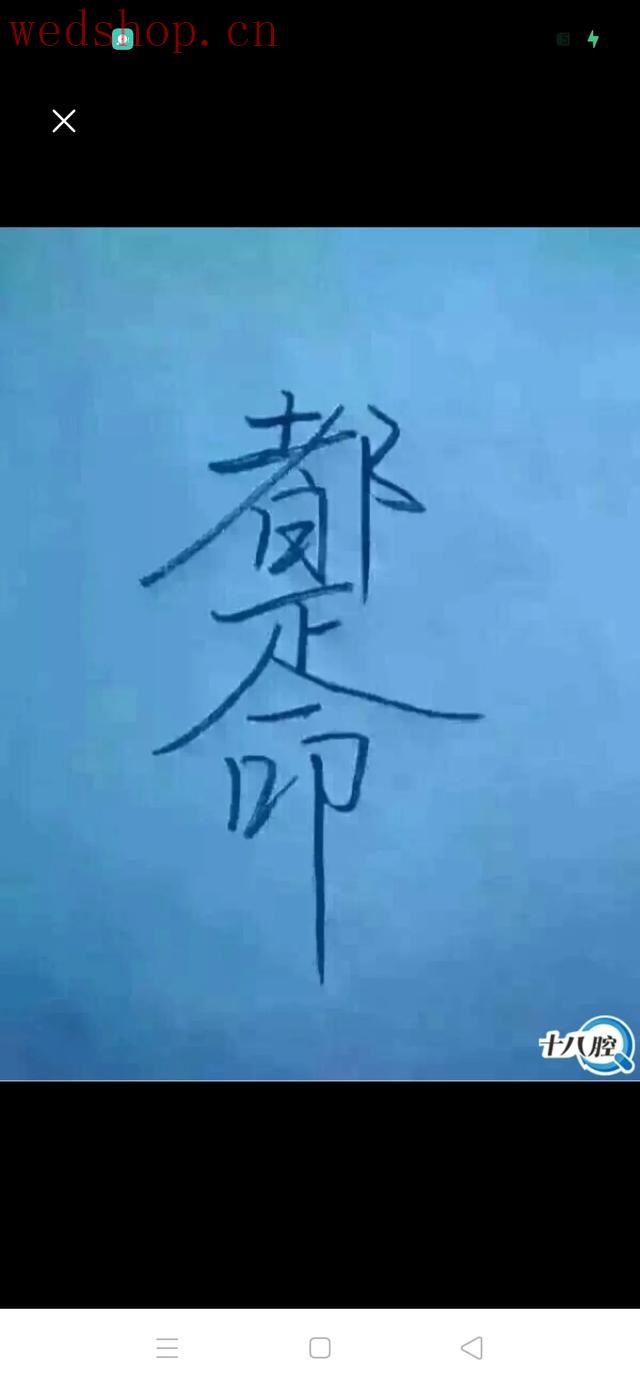 wedshop.cn
都是命
十八腔